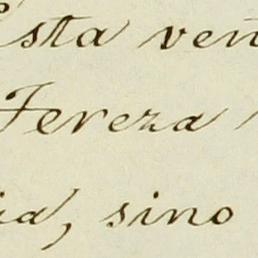 Esta ven
Tereza
ia, sino